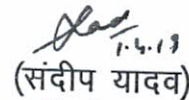 1.4.19
(संदीप यादव)